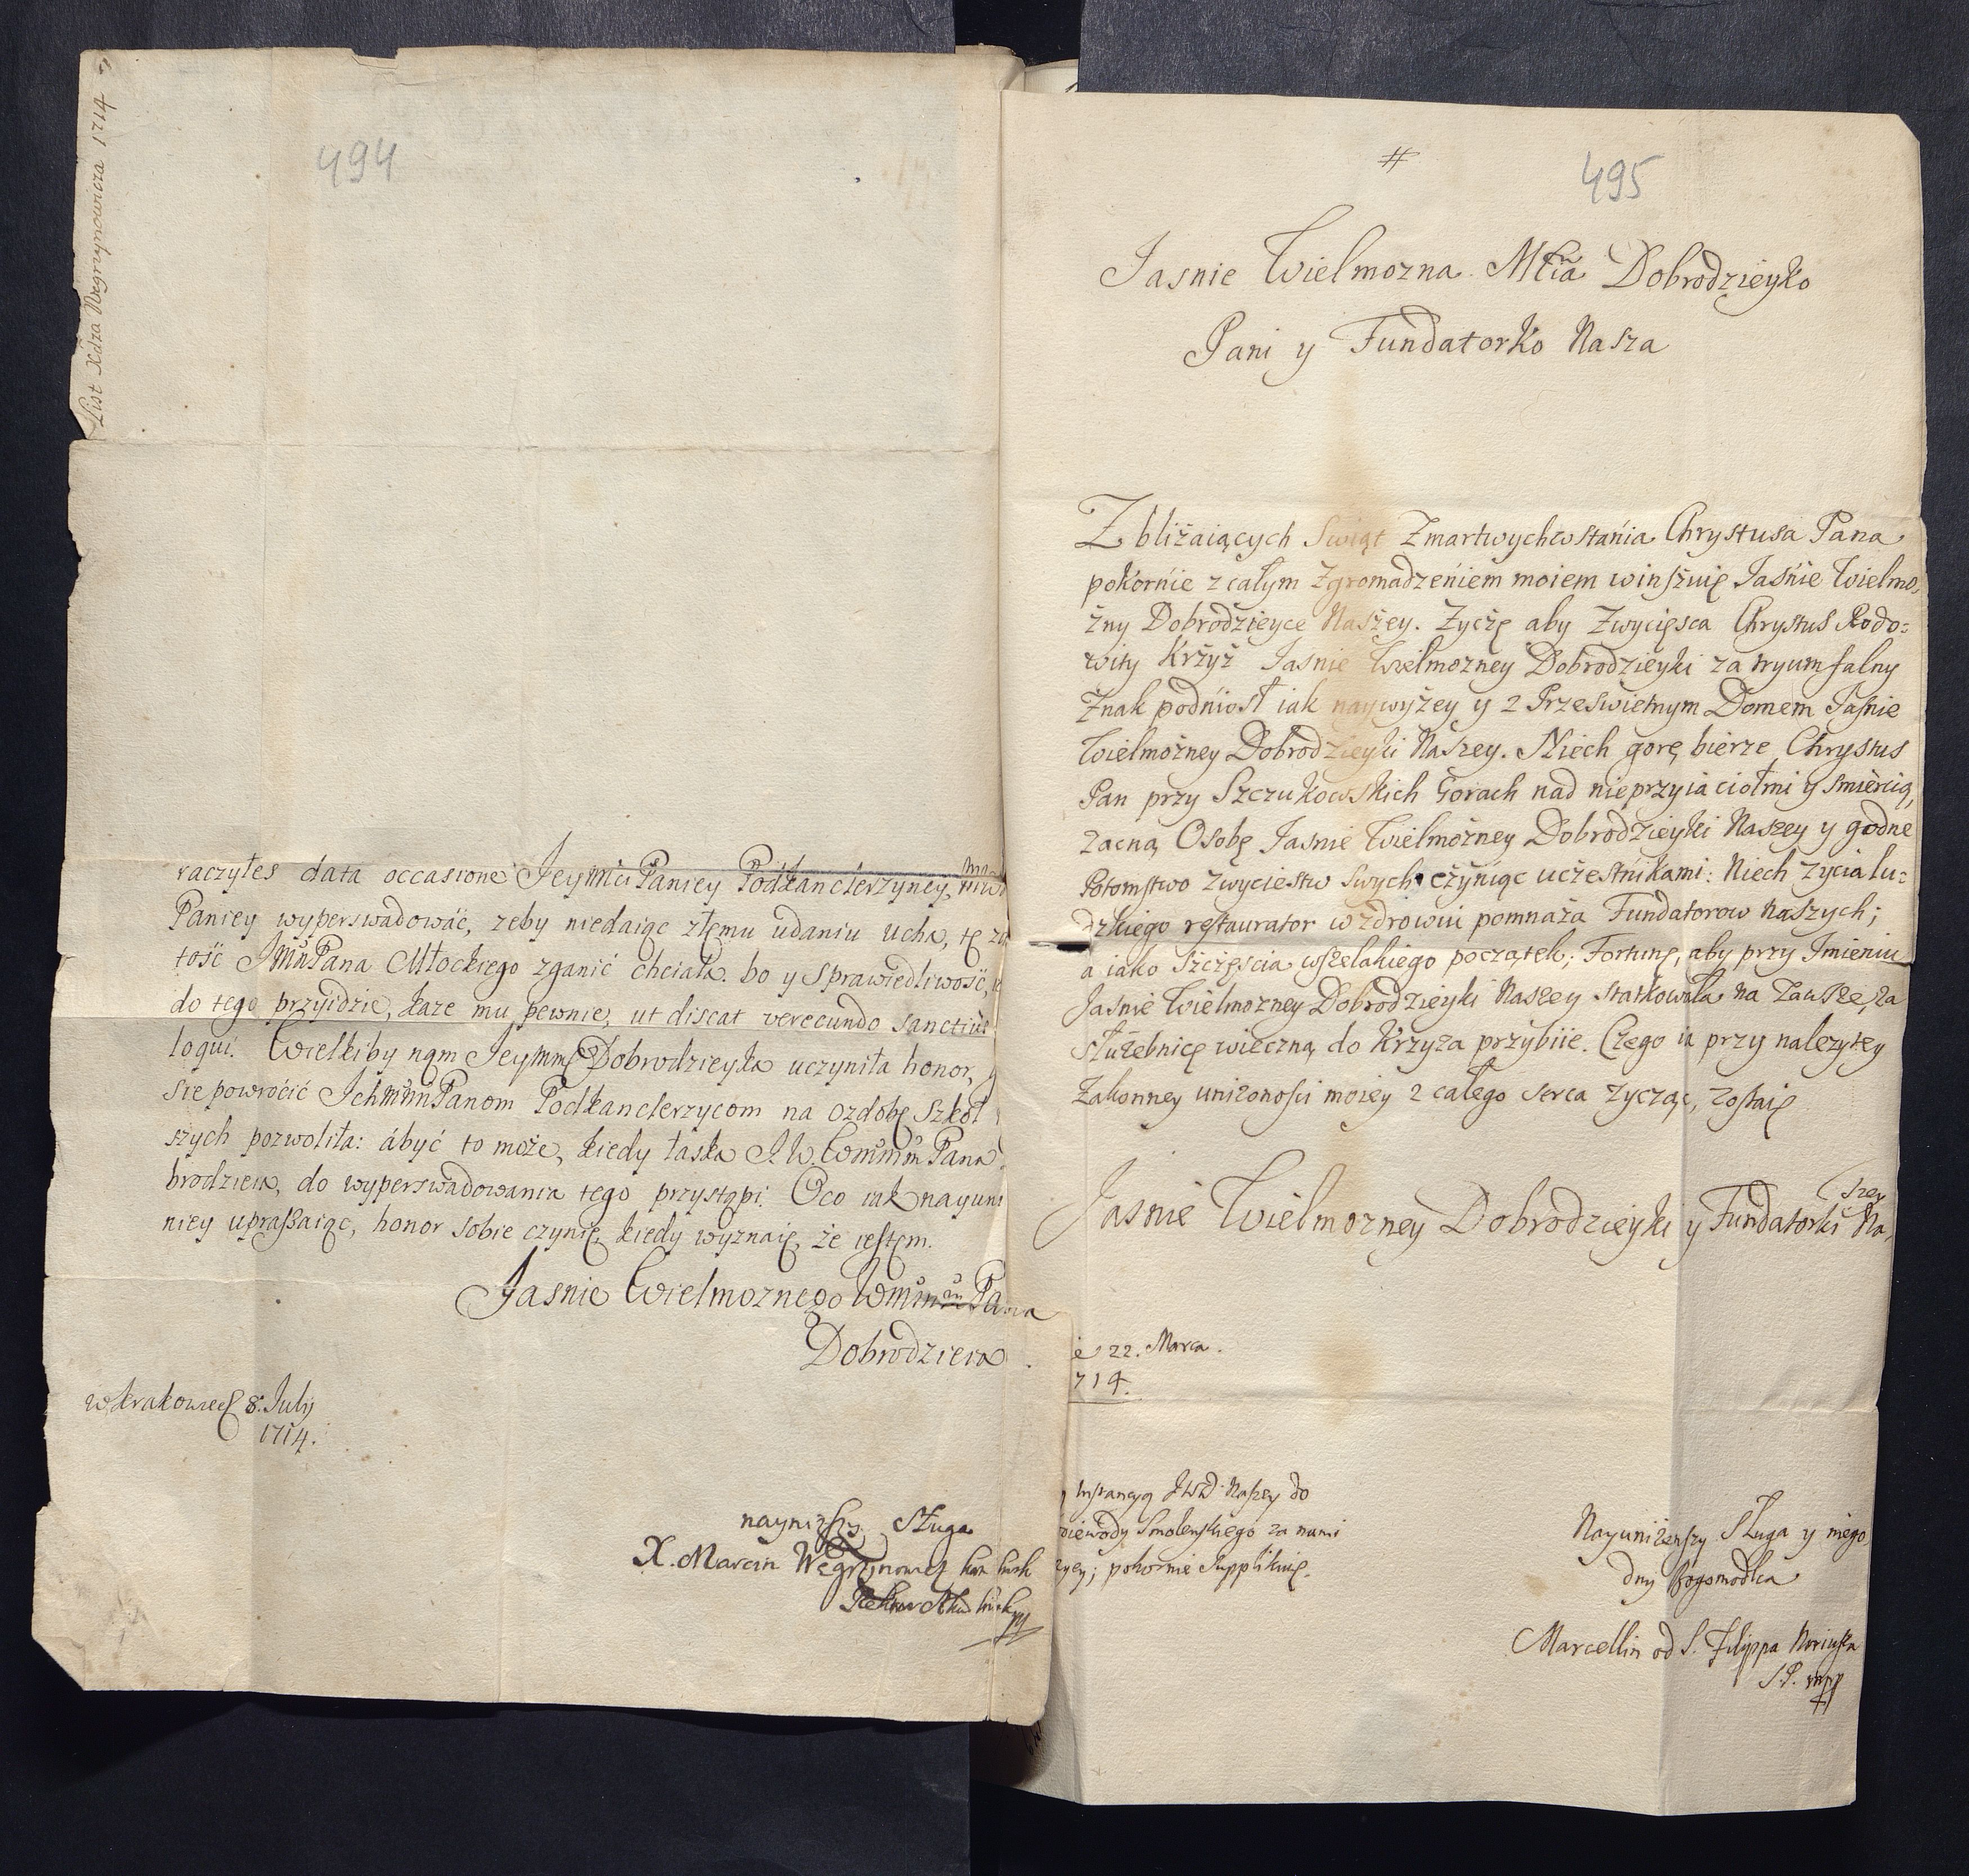 List Xdza Węgrzynowicza 1714
494
raczyłes data occasione Jeymci Paniey Podkanclerzyney,
Paniey wyperswadować, zeby niedaiąc złemu udaniu ucha, tę
tość Pana Młockiego zganić chciała. bo y Sprawiedliwość,
do tego przyidzie, każe mu pewnie, ut discat verecundo sanctius
loqui. Wielkiby nąm Dobrodzieyka uczyniła honor,
się powroćić Panom Podkanclerzycom na ozdobę Szkoł
szych pozwoliła: ábyć to może, kiedy łaska J.W. Pana
brodzieia, do wyperswadowania tego przystąpi. Oco iak nayuni
niey upraszaiąc, honor sobie czynię, kiedy wyznaię, że iestem.
Jasnie Wielmoznego Pana
Dobrodzieia
w Krakowie 8. July
1714.
nayniższy Sługa
X. Marcin Węgrzynowicz
#
495
Jasnie Wielmozna Dobrodzieyko
Pani y Fundatorko Nasza
Zbliżaiących Swiąt Zmartwychwstańia Chrystusa Pana
pokornie z całym Zgromadzeńiem moiem winszuię Jaśńie Wielmo,
żny Dobrodzieyce Naszey. Zyczę aby Zwycięsca Chrystus Rodo=
wity Krzyż Jasnie Wielmozney Dobrodzieyki za tryumfalny
Znak podńiosł iak naywyżey y z Prześwietnym Domem Jaśnie
Wielmożney Dobrodzieyki Naszey. Niech gorę bierze Chrystus
Pan przy Szczukowskich Gorach nad nieprzyiaciołmi y śmiercią,
zacną Osobę Jasnie Wielmożney Dobrodzieyki Naszey y godne
Potomstwo zwycięstw swych czyńiąc uczestńikami: Niech zycia lu=
dzkiego restaurator w zdrowiu pomnaża Fundatorow Naszych;
a iako Szczęścia wszelakiego początek; Fortunę, aby przy Imieniu
Jaśnie Wielmozney Dobrodzieyki Naszey statkowała na zawsze, za
służebnicę wieczną do Krzyża przybiie. Czego ia przy nalezytey
Zakonney uniżoności moiey z całego serca zycząc, zostaię
Jasnie Wielmozney Dobrodzieyki y Fundatorki Na,
szey
22. Marca.
714.
Instancyą Naszey do
iewody Smolenskiego za nami
pokornie supplikuię.
Nayuniżenszy Sługa y niego
dny Bogomodlca
Marcellin od S. Filippa Neriusza
S.P. mpp